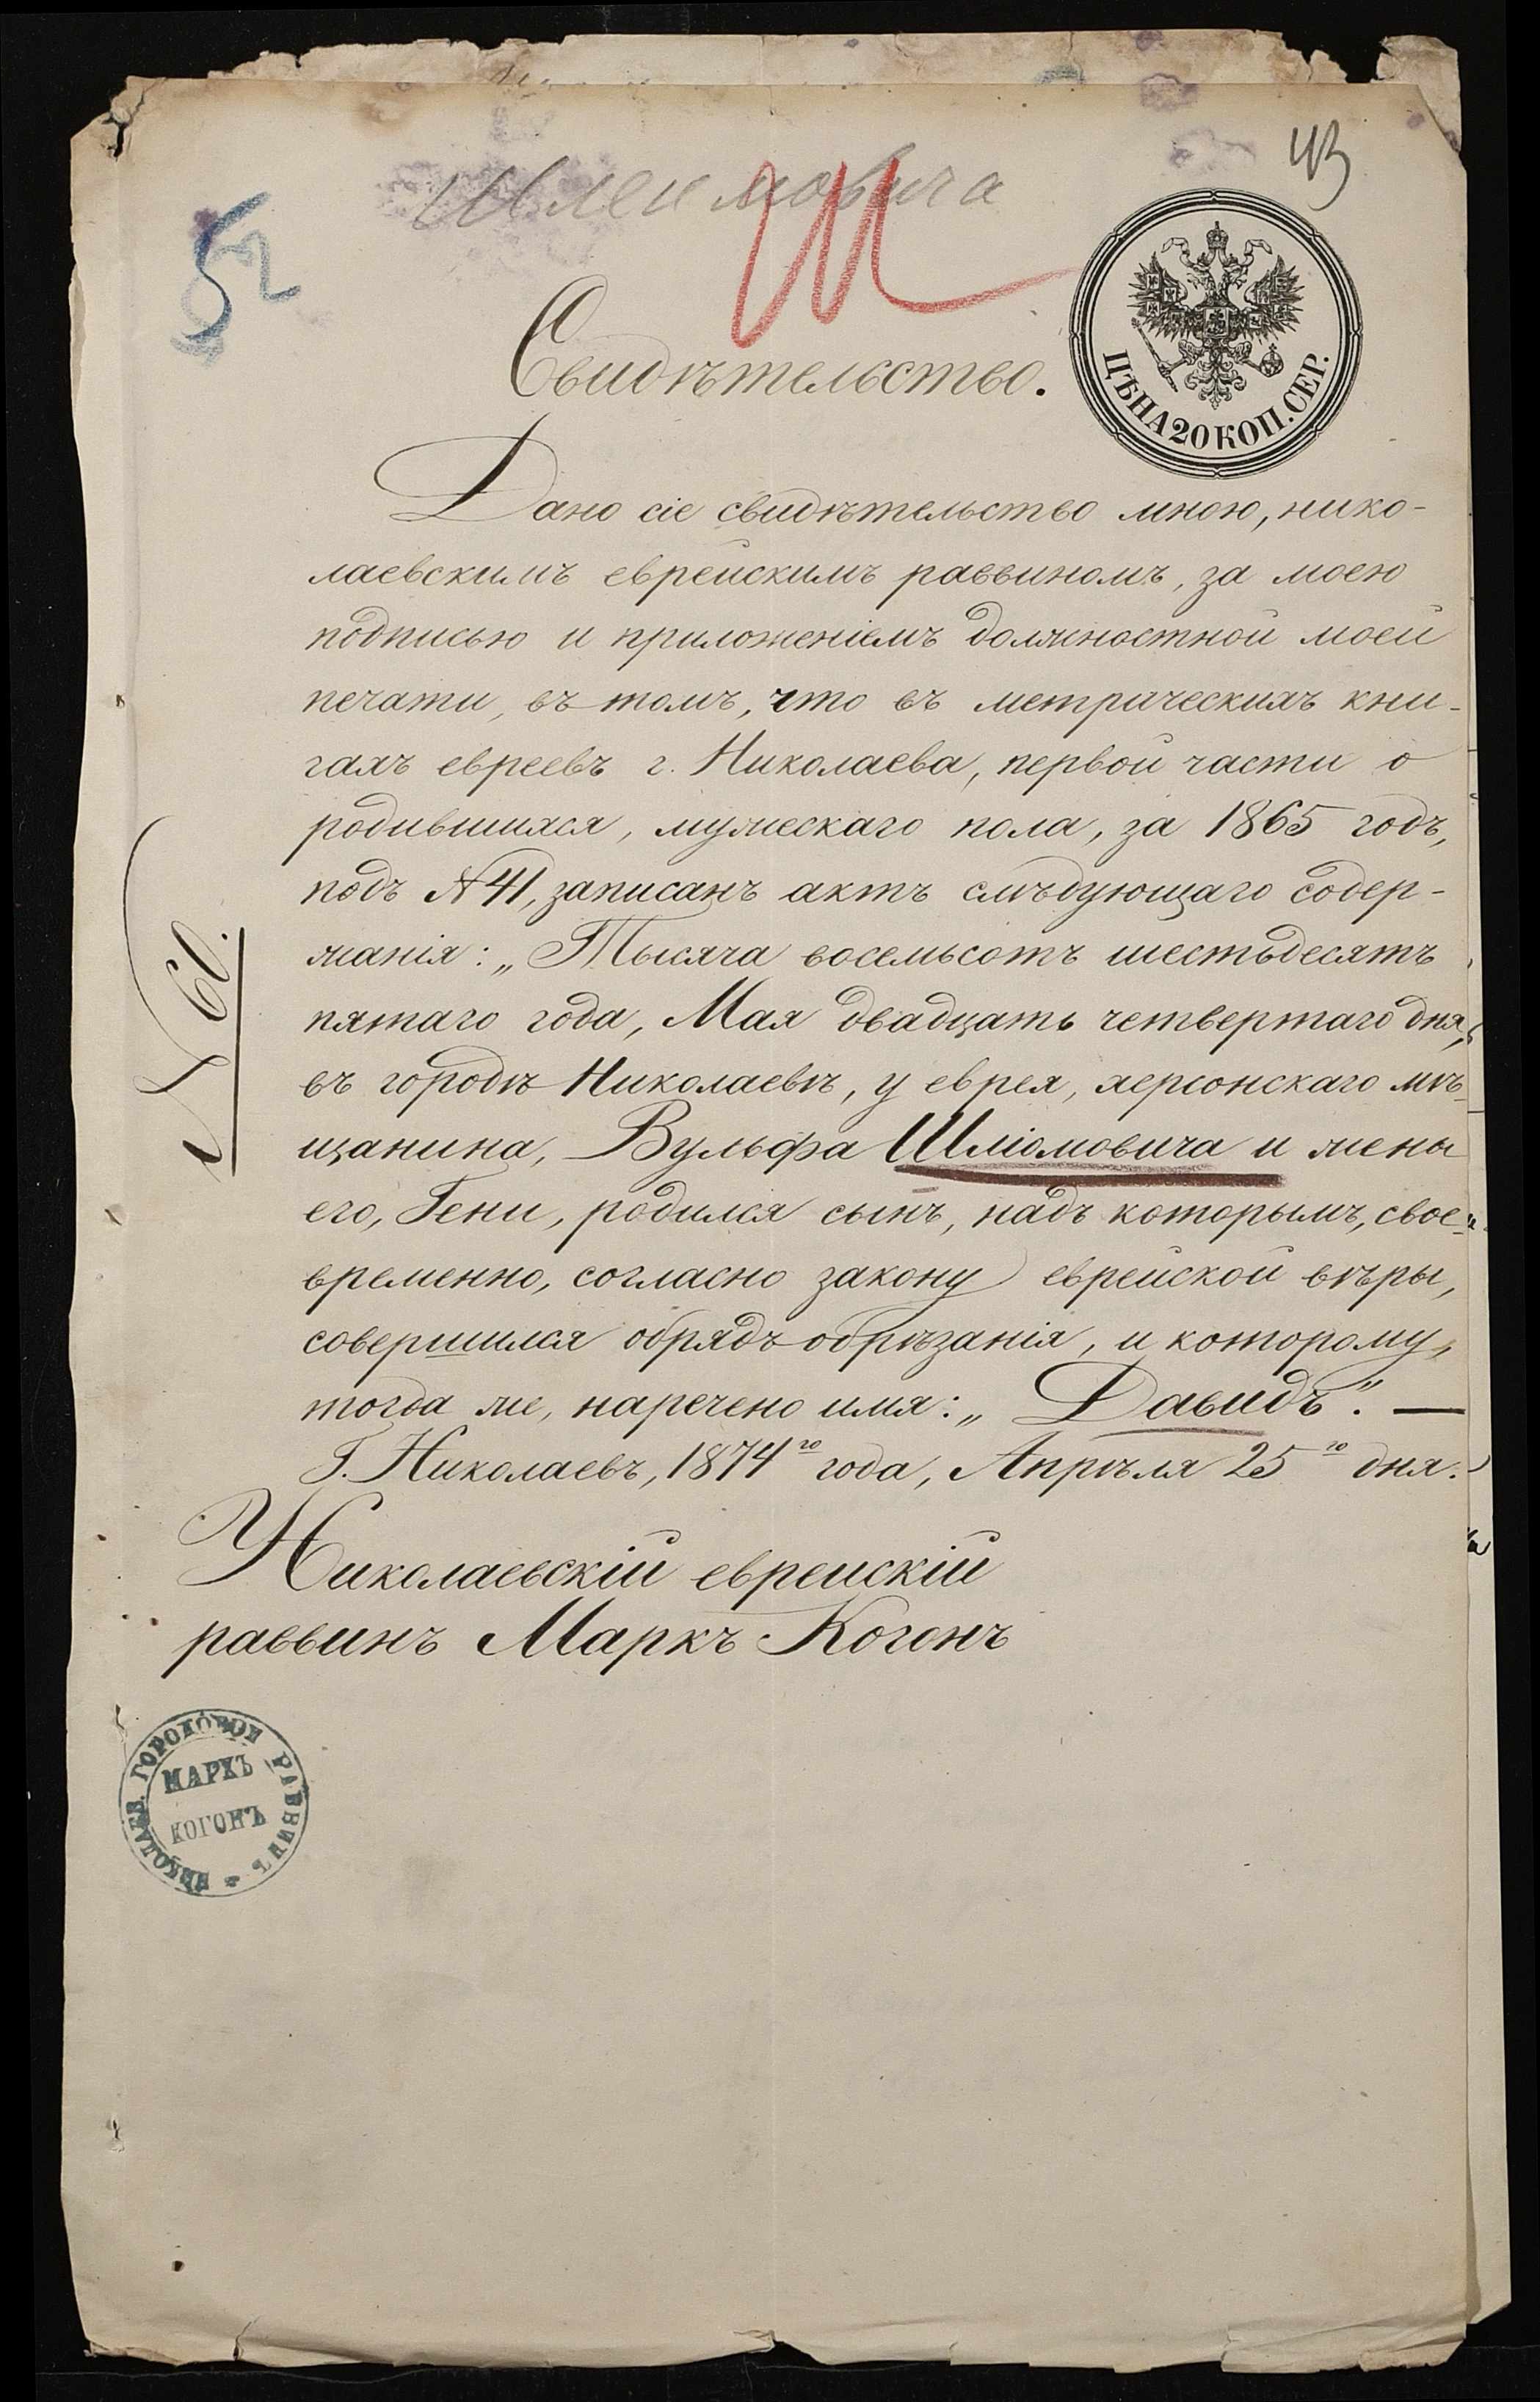 43
52
Ш
ЦѢНА 20 КОП. СЕР.
Свидѣтельство.
Дано сіе свидѣтельство мною, нико-
лаевскимъ еврейскимъ раввиномъ, за моею
подписью и приложеніемъ должностной моей
печати, въ томъ, что въ метрическихъ кни-
гахъ евреевъ г. Николаева, первой части о
родившихся, мужескаго пола, за 1865 годъ,
подъ № 41, записанъ актъ слѣдующаго содер-
жанія: „Тысяча восемьсотъ шестьдесятъ
пятаго года, Мая двадцать четвертаго дня,
въ городѣ Николаевѣ, у еврея, херсонскаго мѣ-
щанина, Вульфа Шліомовича и жены
его, Гени, родился сынъ, надъ которымъ, свое-
временно, согласно закону еврейской вѣры,
совершился обрядъ обрѣзанія, и которому,
тогда же, наречено имя: „Давидъ". —
Г. Николаевъ, 1874го года, Апрѣля 25го дня.
№ 60.
Николаевскій еврейскій
раввинъ Маркъ Когонъ
НИКОЛАЕВ. ГОРОДОВОЙ РАВВИНЪ
МАРКЪ
КОГОНЪ